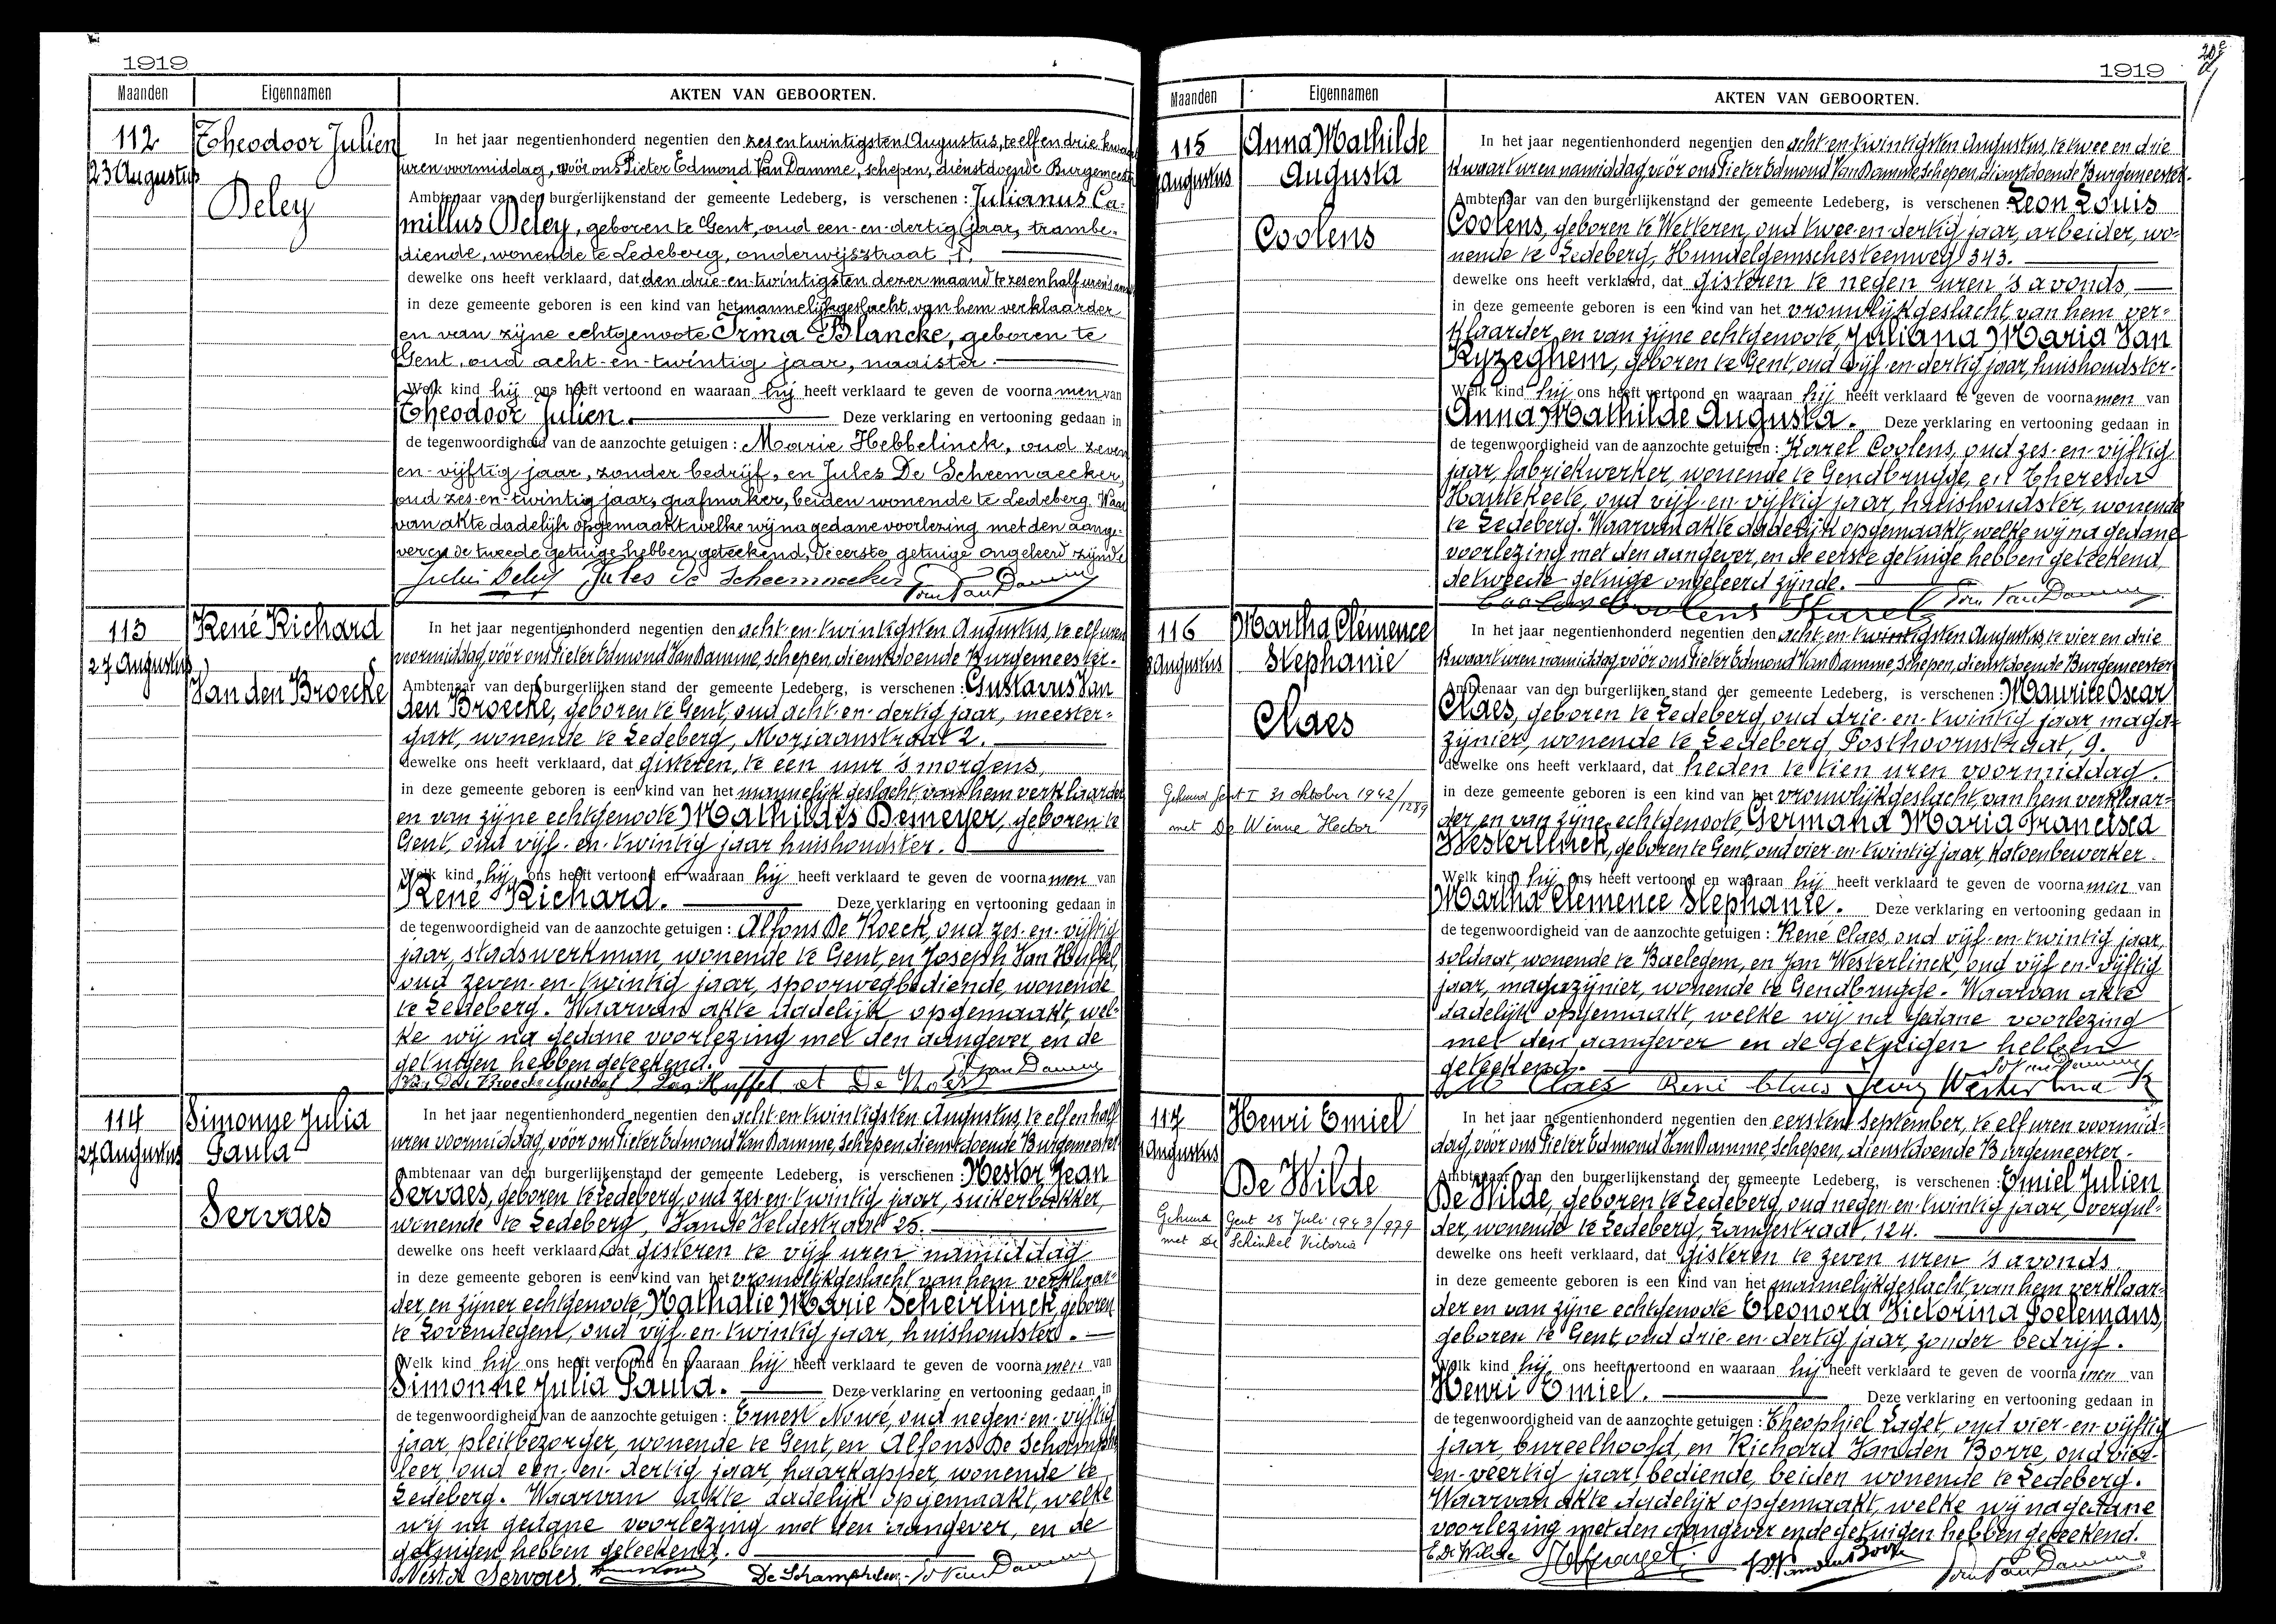 1919
Maanden Eigennamen AKTEN VAN GEBOORTEN.
112
23 Augustus
Theodoor Julien
Deley
In het jaar negentienhonderd negentien den zes en twintigsten Augustus, te elf en drie kwaart
uren voormiddag, vóór ons Pieter Edmond Van Damme, schepen, dienstdoende Burgemeester
Ambtenaar van den burgerlijkenstand der gemeente Ledeberg, is verschenen: Julianus Ca-
millus Deley, geboren te Gent, oud een-en-dertig jaar, trambe-
diende, wonende te Ledeberg, onderwijsstraat, 1.
dewelke ons heeft verklaard, dat den drie-en-twintigsten dezer maand te zes en half uren 's avonds
in deze gemeente geboren is een kind van het mannelijk geslacht, van hem verklaarder
en van zijne echtgenoote Irma Blancke, geboren te
Gent, oud acht-en-twintig jaar, naaister.
Welk kind hij ons heeft vertoond en waaraan hij heeft verklaard te geven de voornamen van
Theodoor Julien. Deze verklaring en vertooning gedaan in
de tegenwoordigheid van de aanzochte getuigen: Marie Hebbelinck, oud zeven
en-vijftig jaar, zonder bedrijf, en Jules De Scheemaecker,
oud zes-en-twintig jaar, grafmaker, beiden wonende te Ledeberg. Waar
van akte dadelijk opgemaakt welke wij na gedane voorlezing met den aange-
ver en de tweede getuige hebben geteekend, de eerste getuige ongeleerd zijnde
Jules De Scheemaecker
113
27 Augustus
René Richard
Van den Broecke
In het jaar negentienhonderd negentien den acht-en-twintigsten Augustus, te elf uren
voormiddag, vóór ons Pieter Edmond Van Damme, schepen, dienstdoende Burgemeester.
Ambtenaar van den burgerlijken stand der gemeente Ledeberg, is verschenen: Gustavus Van
den Broecke, geboren te Gent, oud acht-en-dertig jaar, meester-
gast, wonende te Ledeberg, Moriaanstraat 2.
dewelke ons heeft verklaard, dat gisteren, te een uur 's morgens,
in deze gemeente geboren is een kind van het mannelijk geslacht, van hem verklaarder
en van zijne echtgenoote Mathildis Demeyer, geboren te
Gent, oud vijf-en-twintig jaar huishoudster.
Welk kind hij ons heeft vertoond en waaraan hij heeft verklaard te geven de voornamen van
René Richard. Deze verklaring en vertooning gedaan in
de tegenwoordigheid van de aanzochte getuigen: Alfons De Koeck, oud zes-en-vijftig
jaar, stadswerkman, wonende te Gent, en Joseph Van Huffel,
oud zeven-en-twintig jaar, spoorwegbediende, wonende
te Ledeberg. Waarvan akte dadelijk opgemaakt, wel-
ke wij na gedane voorlezing met den aangever, en de
getuigen hebben geteekend.
114
27 Augustus
Simonne Julia
Paula
Servaes
In het jaar negentienhonderd negentien den acht-en-twintigsten Augustus, te elf en half
uren voormiddag, vóór ons Pieter Edmond Van Damme, schepen, dienstdoende Burgemeester
Ambtenaar van den burgerlijkenstand der gemeente Ledeberg, is verschenen: Nestor Jean
Servaes, geboren te Ledeberg, oud zes-en-twintig jaar, suikerbakker,
wonende te Ledeberg, Van de Veldestraat 25.
dewelke ons heeft verklaard, dat gisteren te vijf uren namiddag
in deze gemeente geboren is een kind van het vrouwlijk geslacht van hem verklaar-
der, en zijner echtgenoote, Nathalie Marie Scheirlinck, geboren
te Lovendegem, oud vijf-en-twintig jaar, huishoudster.
Welk kind hij ons heeft vertoond en waaraan hij heeft verklaard te geven de voornamen van
Simonne Julia Paula. Deze verklaring en vertooning gedaan in
de tegenwoordigheid van de aanzochte getuigen: Ernest Nowé, oud negen-en-vijftig
jaar, pleitbezorger, wonende te Gent, en Alfons De Schamphe
leer, oud een-en-dertig jaar, haarkapper, wonende te
Ledeberg. Waarvan akte dadelijk opgemaakt, welke
wij na gedane voorlezing met den aangever, en de
getuigen hebben geteekend.
Nestor Servaes De Schampheleer
1919
Maanden Eigennamen AKTEN VAN GEBOORTEN.
115
Augustus
Anna Mathilde
Augusta
Coolens
In het jaar negentienhonderd negentien den acht-en-twintigsten Augustus, te twee en drie
kwaart uren namiddag vóór ons Pieter Edmond Van Damme schepen, dienstdoende Burgemeester.
Ambtenaar van den burgerlijkenstand der gemeente Ledeberg, is verschenen: Leon Louis
Coolens, geboren te Wetteren, oud twee en dertig jaar, arbeider, wo-
nende te Ledeberg, Hundelgemschesteenweg 343.
dewelke ons heeft verklaard, dat gisteren te negen uren 's avonds,
in deze gemeente geboren is een kind van het vrouwlijk geslacht, van hem ver-
klaarder, en van zijne echtgenoote, Juliana Maria Van
Ryzeghem, geboren te Gent, oud vijf-en-dertig jaar, huishoudster.
Welk kind hij ons heeft vertoond en waaraan hij heeft verklaard te geven de voornamen van
Anna Mathilde Augusta. Deze verklaring en vertooning gedaan in
de tegenwoordigheid van de aanzochte getuigen: Karel Coolens, oud zes-en-vijftig
jaar, fabriekwerker, wonende te Gendbrugge, en Theresia
Hantekeete, oud vijf-en-vijftig jaar, huishoudster, wonende
te Ledeberg. Waarvan akte dadelijk opgemaakt, welke wij na gedane
voorlezing met den aangever, en de eerste getuige hebben geteekend,
de tweede getuige ongeleerd zijnde.
Coolens Coolens Karel
116
Augustus
Martha Clémence
Stephanie
Claes
Gehuwd Gent I 31 oktober 1942/1289
met De Winne Hector
In het jaar negentienhonderd negentien den acht-en-twintigsten Augustus, te vier en drie
kwaart uren namiddag vóór ons Pieter Edmond Van Damme, schepen, dienstdoende Burgemeester
Ambtenaar van den burgerlijken stand der gemeente Ledeberg, is verschenen: Maurice Oscar
Claes, geboren te Ledeberg, oud drie-en-twintig jaar, maga-
zijnier, wonende te Ledeberg, Posthoornstraat, 9.
dewelke ons heeft verklaard, dat heden te tien uren voormiddag.
in deze gemeente geboren is een kind van het vrouwlijk geslacht, van hem verklaar-
der, en van zijne echtgenoote, Germana Maria Francisca
Westerlinck, geboren te Gent, oud vier-en-twintig jaar, katoenbewerker.
Welk kind hij ons heeft vertoond en waaraan hij heeft verklaard te geven de voornamen van
Martha Clemence Stephanie. Deze verklaring en vertooning gedaan in
de tegenwoordigheid van de aanzochte getuigen: René Claes, oud vijf-en-twintig jaar,
soldaat, wonende te Baelegem, en Jan Westerlinck, oud vijf-en-vijftig
jaar, magazijnier, wonende te Gendbrugge. Waarvan akte
dadelijk opgemaakt, welke wij na gedane voorlezing
met den aangever en de getuigen hebben
geteekend.
Claes René Claes
117
Augustus
Henri Emiel
De Wilde
Gehuwd Gent 28 Juli 1943/979
met De Schinkel Victoria
In het jaar negentienhonderd negentien den eersten September, te elf uren voormid-
dag, vóór ons Pieter Edmond Van Damme, schepen, dienstdoende Burgemeester.
Ambtenaar van den burgerlijkenstand der gemeente Ledeberg, is verschenen: Emiel Julien
De Wilde, geboren te Ledeberg, oud negen-en-twintig jaar, overgul-
der, wonende te Ledeberg, Langestraat, 124.
dewelke ons heeft verklaard, dat gisteren te zeven uren 's avonds
in deze gemeente geboren is een kind van het mannelijk geslacht, van hem verklaar-
der en van zijne echtgenoote Eleonora Victorina Poelemans,
geboren te Gent, oud drie-en-dertig jaar, zonder bedrijf.
Welk kind hij ons heeft vertoond en waaraan hij heeft verklaard te geven de voornamen van
Henri Emiel. Deze verklaring en vertooning gedaan in
de tegenwoordigheid van de aanzochte getuigen: Theophiel Laget, oud vier-en-vijftig
jaar, bureelhoofd, en Richard Van den Borre, oud vier-
en-veertig jaar, bediende, beiden wonende te Ledeberg.
Waarvan akte dadelijk opgemaakt, welke wij na gedane
voorlezing met den aangever en de getuigen hebben geteekend.
E. De Wilde